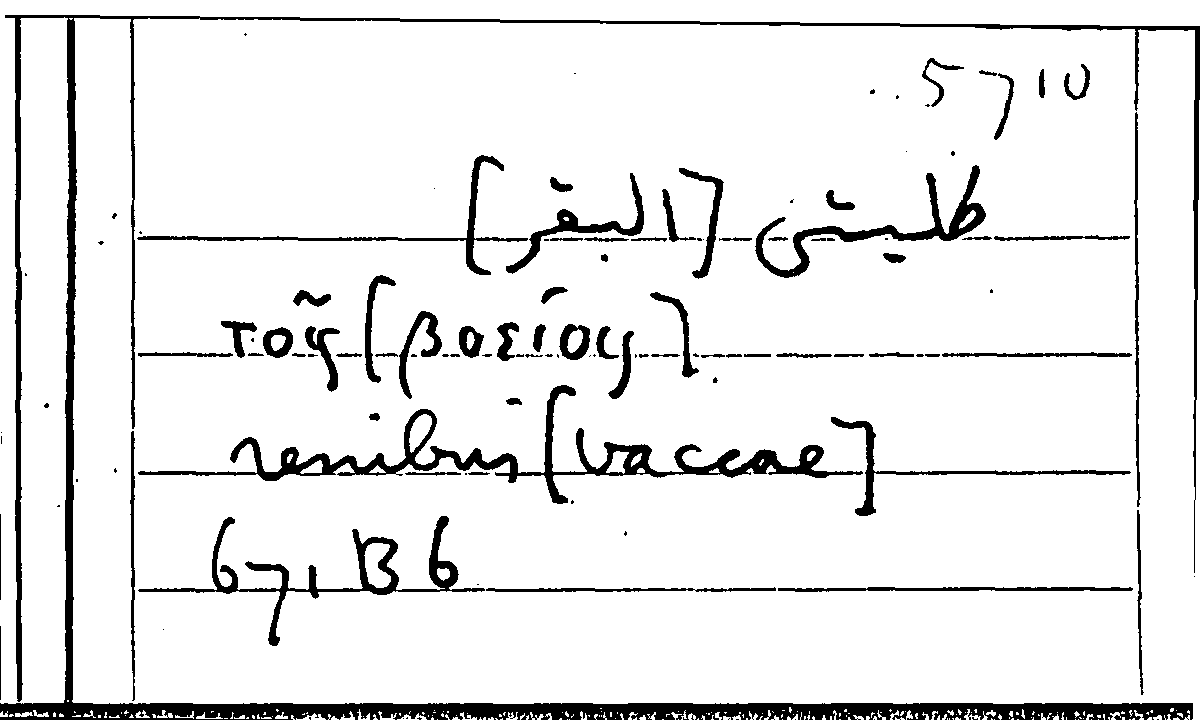 5710
كليتى [البقر]
τοῖς [βοείοις]
renibus [vaccae]
671 B 6